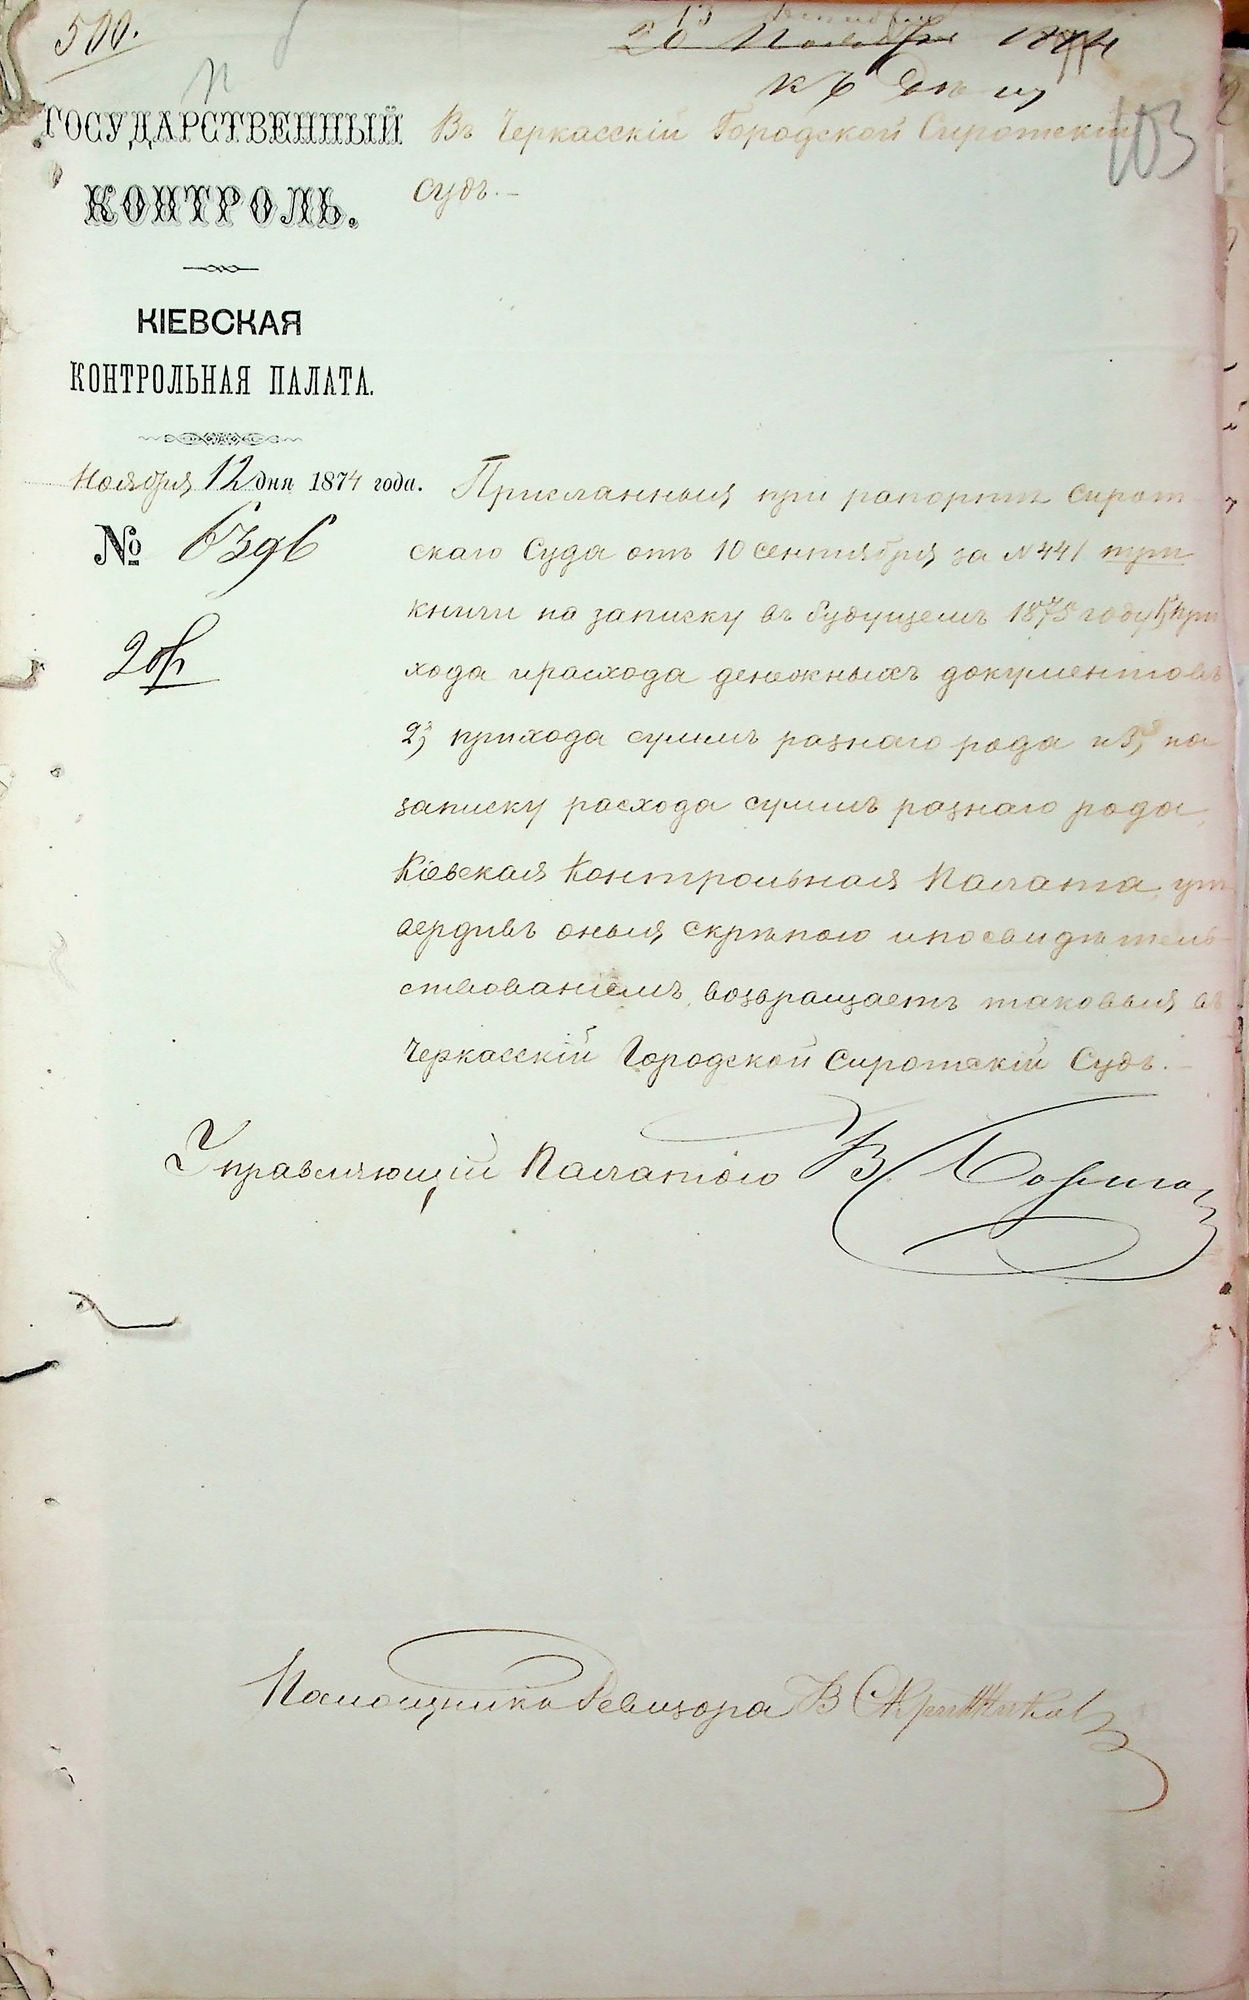 500.
20 Ноября 1874
къ дѣлу
103
ГОСУДАРСТВЕННЫЙ
КОНТРОЛЬ.
КІЕВСКАЯ
КОНТРОЛЬНАЯ ПАЛАТА.
Ноября 12 дня 1874 года.
№ 6396
Въ Черкасскій Городской Сиротскій
судъ.-
Присланныя при рапортѣ Сирот-
скаго Суда отъ 10 сентября за №441 три
книги на записку въ будущемъ 1875 году 1, при
хода и расхода денежныхъ документовъ
2, прихода суммъ разнаго рода и 3, на
записку расхода суммъ разнаго рода,
Кіевская Контрольная Палата, ут
вердивъ оныя, скрѣпою и посвидѣтель-
ствованіемъ, возвращаетъ таковыя въ
Черкасскій Городской Сиротскій Судъ.-
Управляющій Палатою В.
Помощникъ Ревизора В